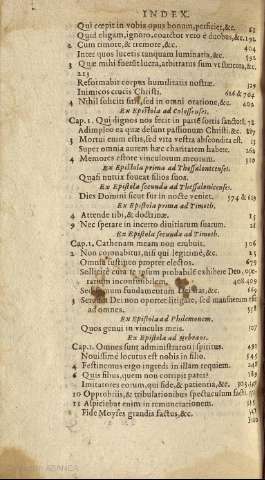 INDEX.
Qui cœpit in vobis opus bonum, perficiet, &c. 63
Quid eligam, ignoro, coarctor vero è duobus, &c. 192
2 Cum timore, & tremore, &c.
Inter quos lucetis tanquam luminaria, &c. 592
3 Quæ mihi fuerūt lucra, arbitratus sum vt stercora, &c.
223
Reformabit corpus humilitatis nostræ. 329
Inimicos crucis Christi. 626 & 704
4 Nihil soliciti sitis, sed in omni oratione, &c. 409
Ex Epistola ad Colossenses.
Cap. 1. Qui dignos nos fecit in partē sortis sanctorū. 78
Adimpleo ea quæ desunt passionum Christi, &c. 287
3 Mortui enim estis, & vita vestra abscondita est. 13
Super omnia autem hæc charitatem habete. 260
4 Memores estote vinculorum meorum. 310
Ex Epistola prima ad Thessalonicenses.
Quasi nutrix foueat filios suos.
Ex Epistola secunda ad Thessalonicenses.
Dies Domini sicut fur in nocte veniet. 574 & 619
Ex Epistola prima ad Timoth.
4 Attende tibi, & doctrinæ. 15
9 Nec sperare in incerto diuitiarum suarum. 28
Ex Epistola secunda ad Timoth.
Cap. 1. Cathenam meam non erubuit. 306
2 Non coronabitur, nisi qui legitimè, &c. 25
Omnia sustineo propter electos. 659
Sollicitè cura te ipsum probabilē exhibere Deo, ope-
rarium inconfusibilem. 408 409
fundamentum Dei stat, &c. 669
Seruum Dei non oportet litigare, sed mansuetum esse
ad omnes. 558
Ex Epistola ad Philemonem.
Quos genui in vinculis meis. 307
Ex Epistola ad Hebræos.
Cap. 1. Omnes sunt administratorij spiritus. 492
Nouissimè locutus est nobis in filio. 545
4 Festinemus ergo ingredi in illam requiem. 248
6 Quis filius, quem non corripit pater? 189
Imitatores eorum, qui fide, & patientia, &c.
10 Opprobrijs, & tribulationibus spectaculum facti.
11 Aspiciebat enim in remunerationem. 315
Fide Moyses grandis factus, &c.